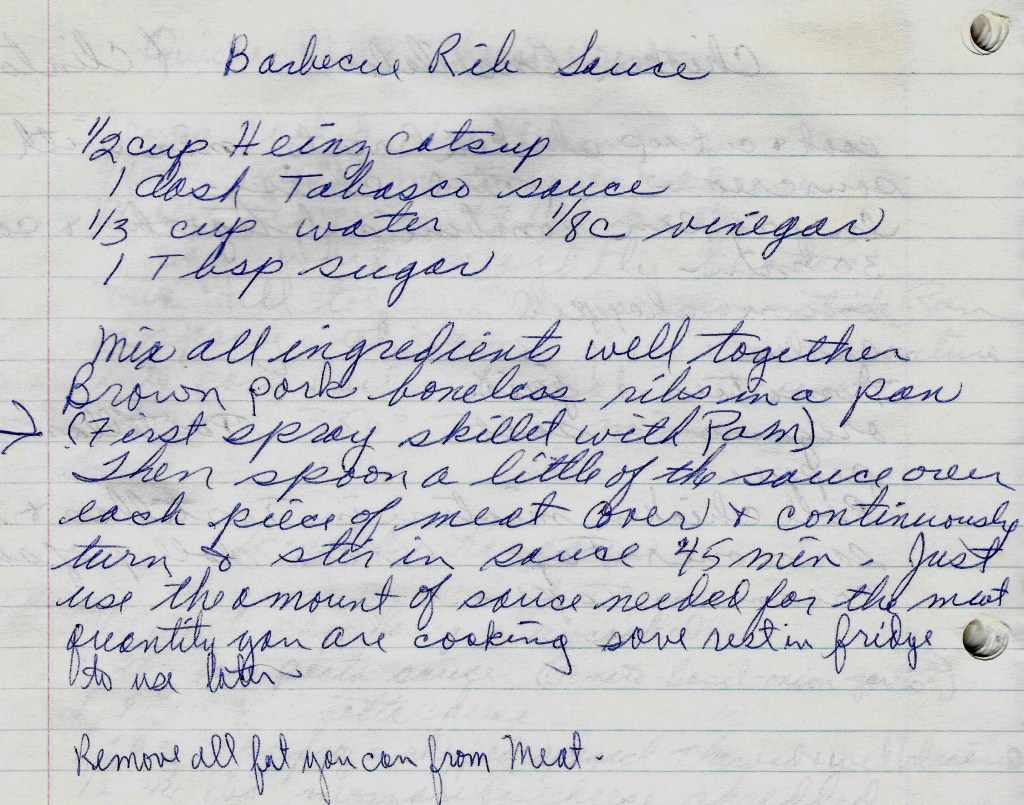 Barbecue Rib Sauce
1/2 cup Heinz Catsup
1 dash Tabasco sauce
1/3 cup water 1/8c vinegar
1 Tbsp sugar
Mix all ingredients well together
Brown pork boneless ribs in a pan
(First spray skillet with Pam)
Then spoon a little of the sauce over
each piece of meat (over) & continuously
turn & stir in sauce 45 min. Just
use the amount of sauce needed for the meat
quantity you are cooking save rest in fridge
to use later
Remove all fat you can from Meat.